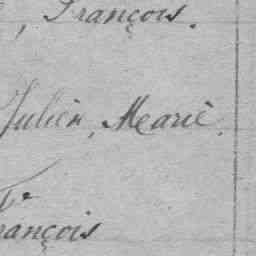 , François.
Julien, Marie.
Vᵉ
rançois